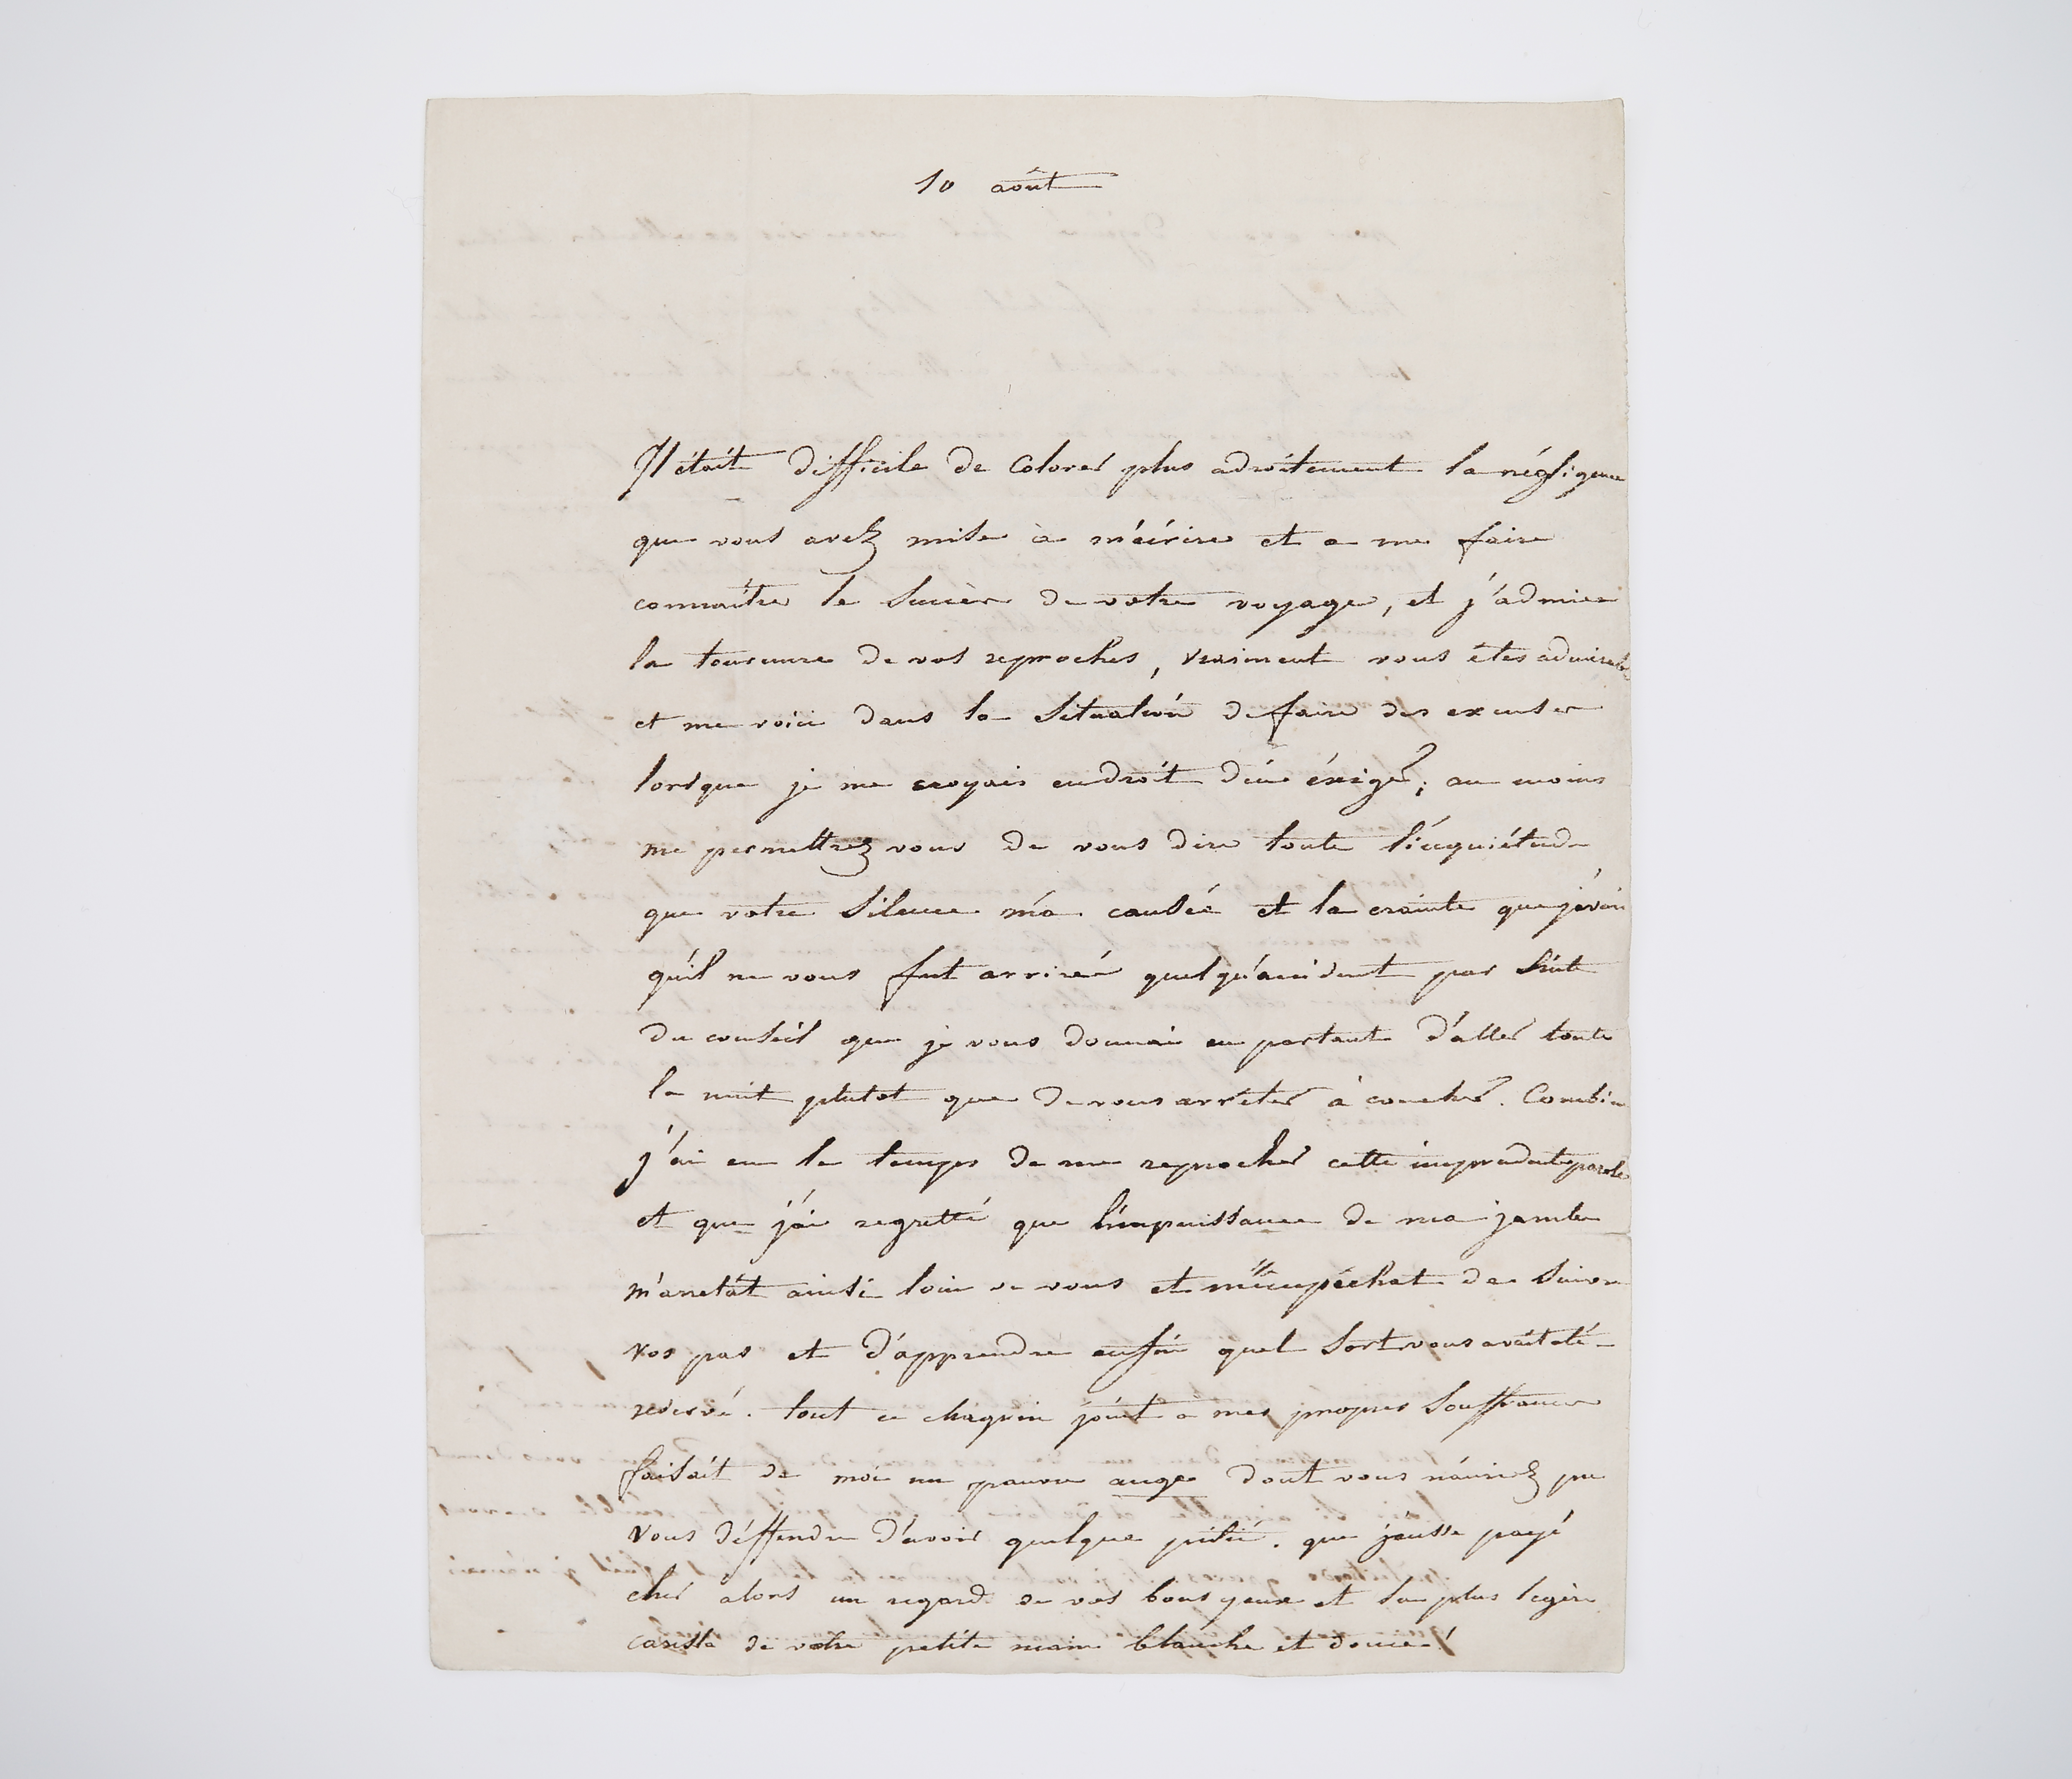 10 août
Il était difficile de colorer plus adroitement la négligence
que vous avez mise à m'écrire et a me faire
connaître le succès de votre voyage, et j'admire
la tournure de vos reproches, vraiment vous êtes admirable
et me voici dans la situation de faire des excuses
lorsque je me croyais en droit d'en éxiger; au moins
me permettrez vous de vous dire toute l'inquiétude
que votre silence m'a causée et la crainte que j'avais
qu'il ne vous fut arrivé quelqu'accident par suite
du conseil que je vous donnai en partant d'aller toute
la nuit plutot que de vous arrêter à coucher. Combien
j'ai eu le temps de me reprocher cette imprudente parole
et que j'ai regretté que l'impuissance de ma jambe
m'arretat ainsi loin de vous et m'empéchat de suivre
vos pas et d'apprendre enfin quel sort vous avait été
reservé. tout ce chagrin joint a mes propres souffrances
faisait de moi un pauvre ange dont vous n'auriez pu
vous déffendre d'avoir quelque pitié. que j'eusse payé
cher alors un regard de vos bons yeux et la plus legère
caresse de votre petite main blanche et douce!